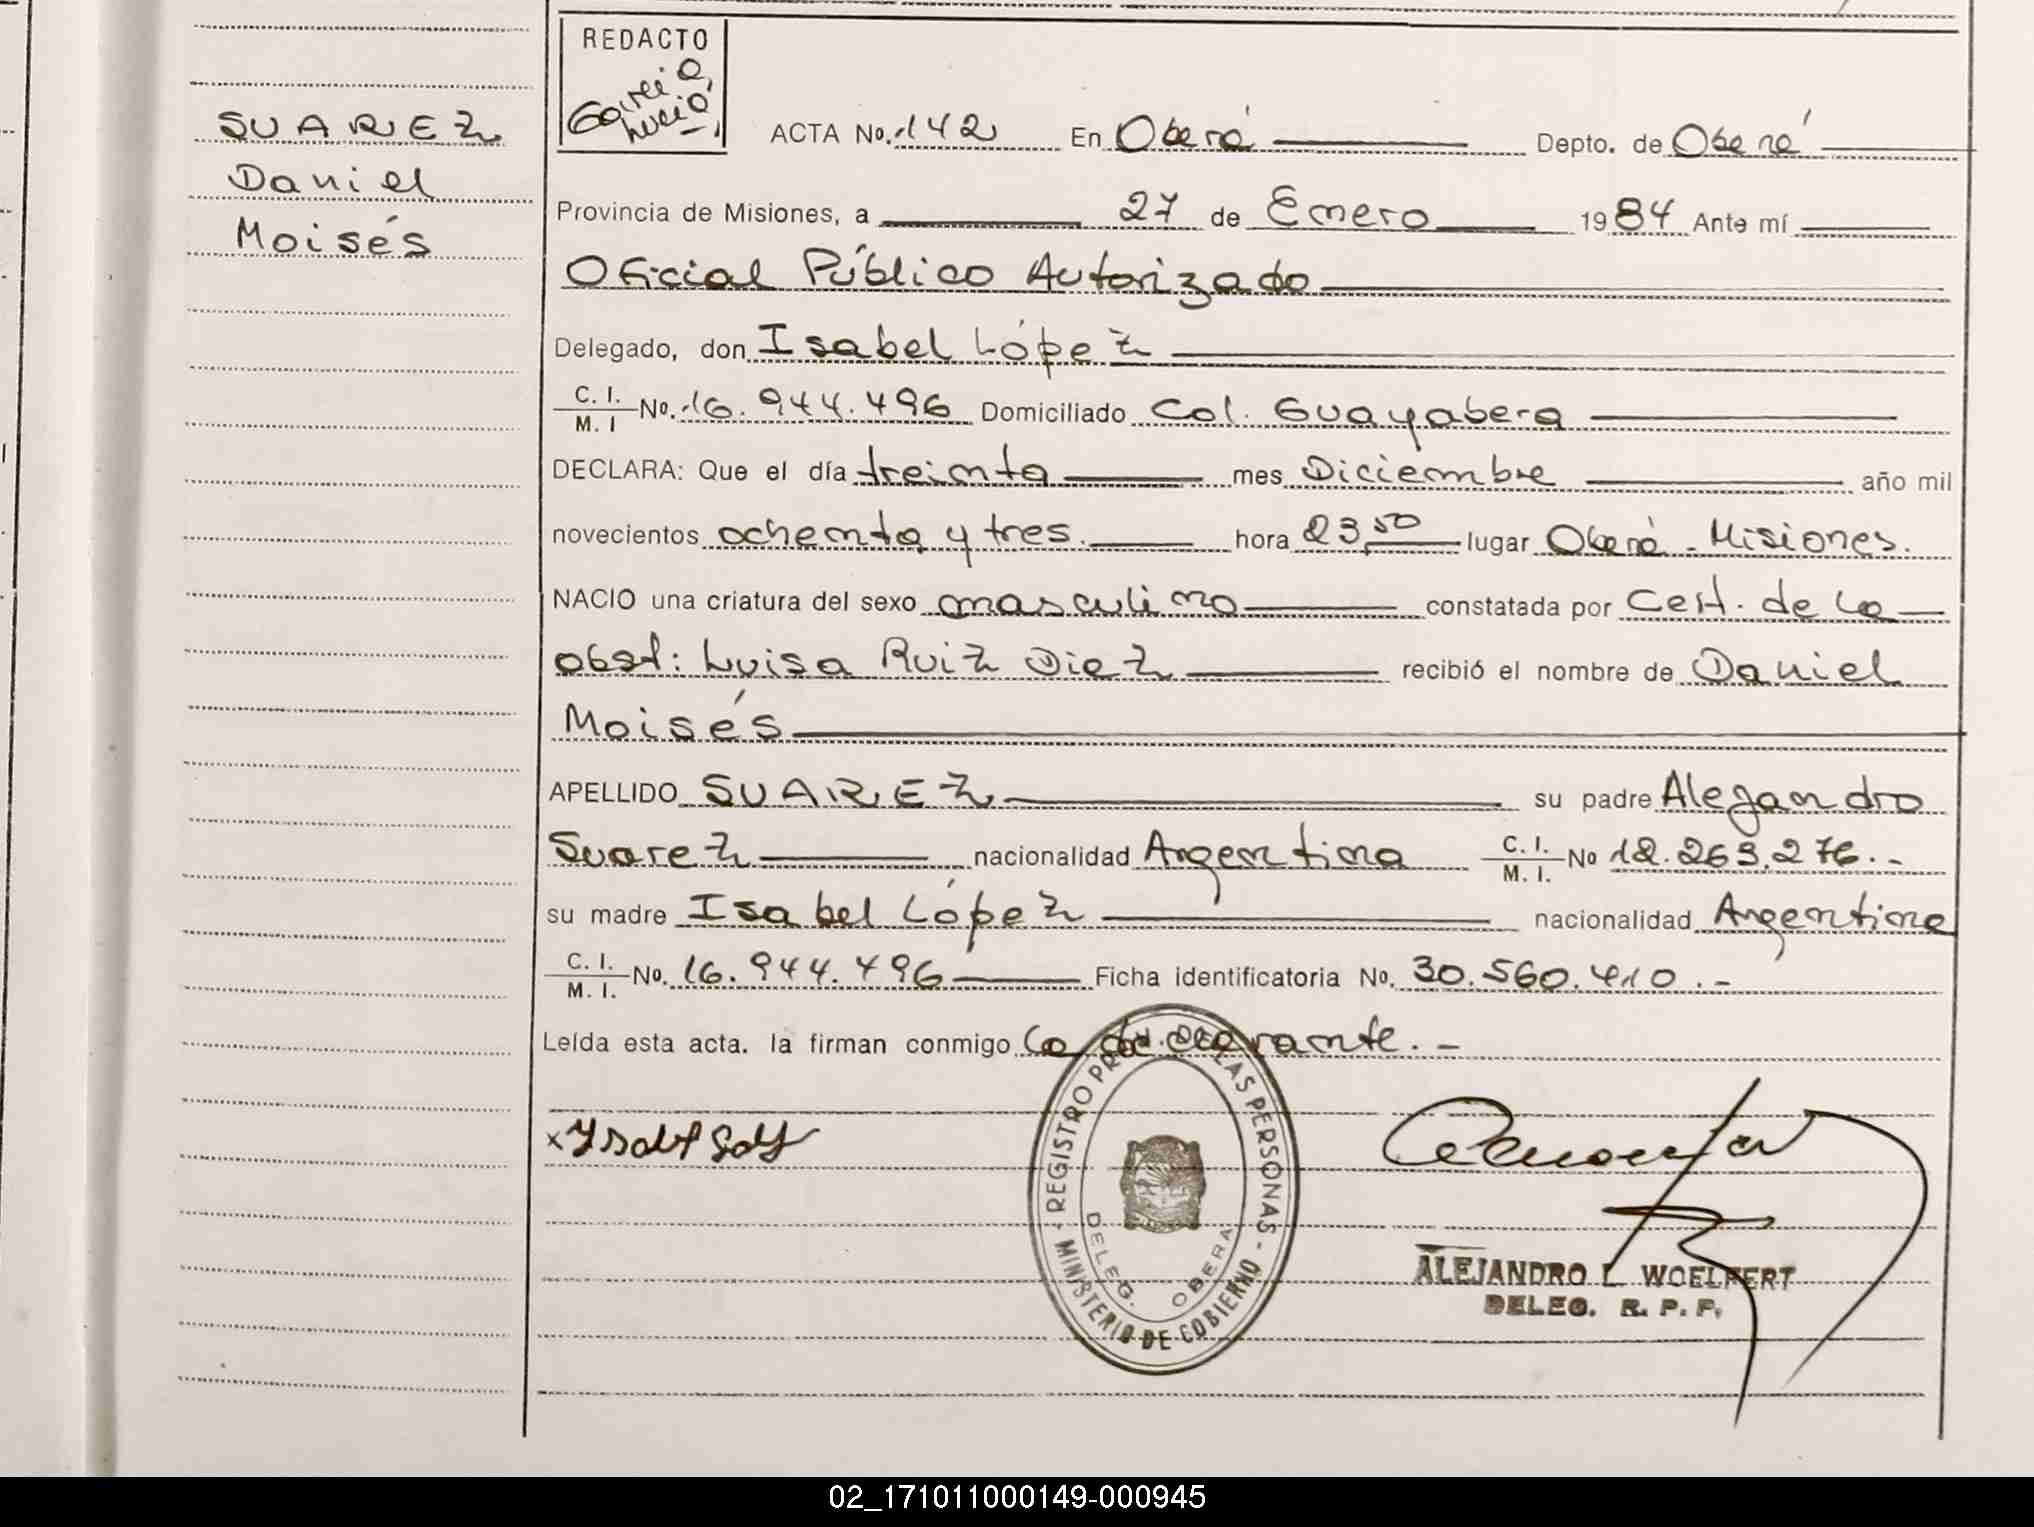 SUAREZ
Daniel
Moisés
REDACTO
García
Lucía
ACTA No. 142 En Oberá Depto. de Oberá
Provincia de Misiones, a 27 de Enero 1984 Ante mí
Oficial Público Autorizado
Delegado, don Isabel López
C. I. / M. I No. 16.944.496 Domiciliado Col. Guayabera
DECLARA: Que el día treinta mes Diciembre año mil
novecientos ochenta y tres. hora 23,50 lugar Oberá - Misiones.
NACIO una criatura del sexo masculino constatada por Cert. de la
obst: Luisa Ruiz Diez recibió el nombre de Daniel
Moisés
APELLIDO SUAREZ su padre Alejandro
Suarez nacionalidad Argentina C. I. / M. I. No 12.263.276.-
su madre Isabel López nacionalidad Argentina
C. I. / M. I. No. 16.944.496 Ficha identificatoria No. 30.560.410.-
Leída esta acta. la firman conmigo la declarante.-
REGISTRO PROV. DE LAS PERSONAS - MINISTERIO DE GOBIERNO -
DELEG. OBERA
ALEJANDRO L. WOELFERT
DELEG. R. P. P.
02_171011000149-000945